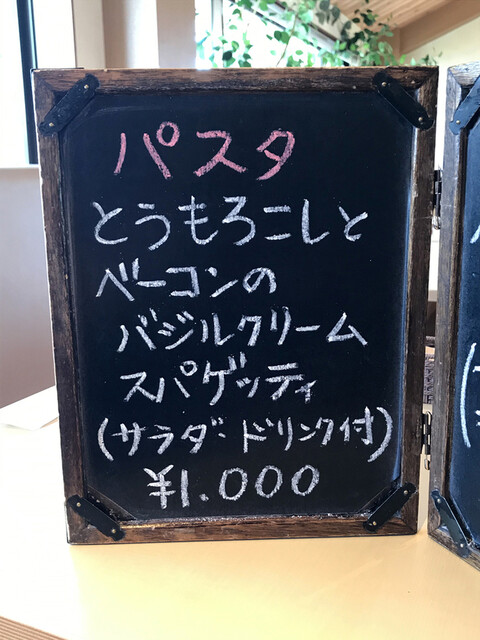 パスタ
とうもろこしと
ベーコンの
バジルクリーム
スパゲッティ
(サラダ・ドリンク付)
¥1.000